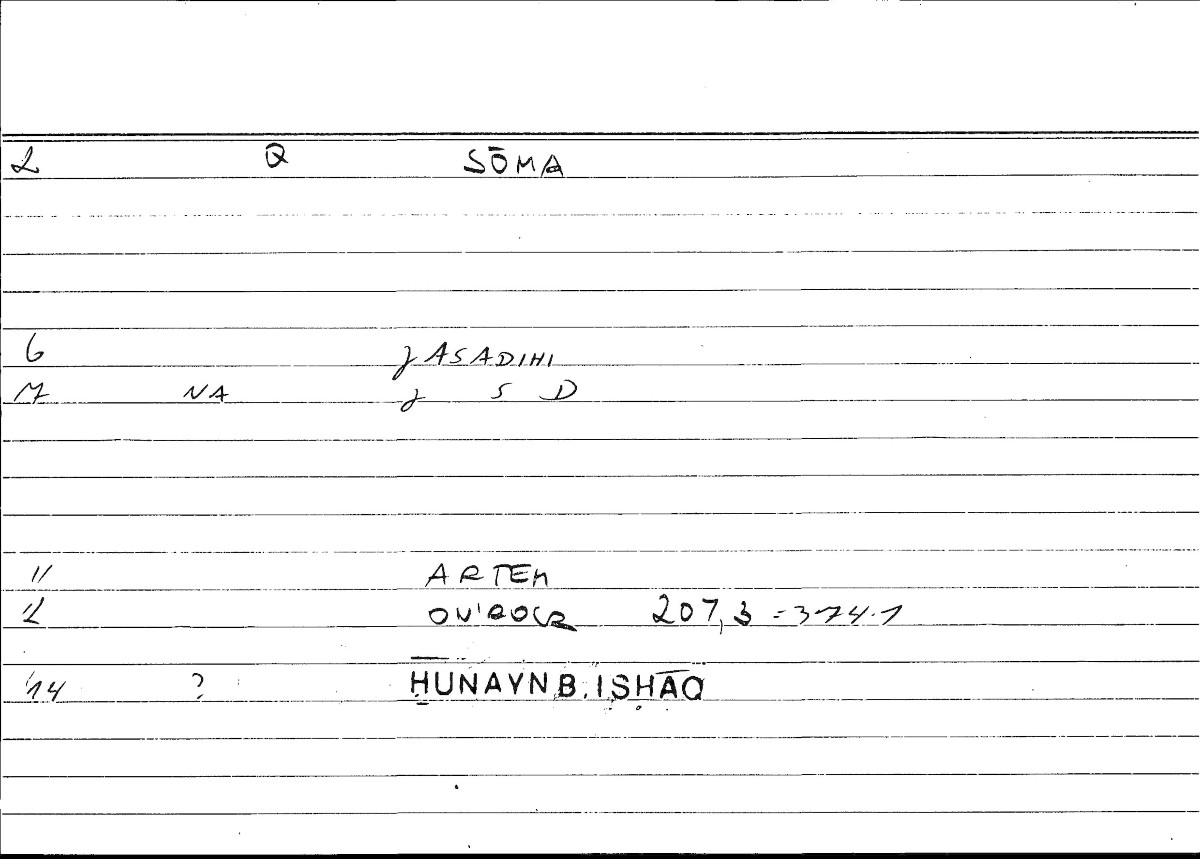 2 Q SŌMA
6 JASADIHI
7 NA J S D
11 ARTEM
12 ONIROCR 207,3 = 374.1
14 ? ḤUNAYN B. ISḤĀQ